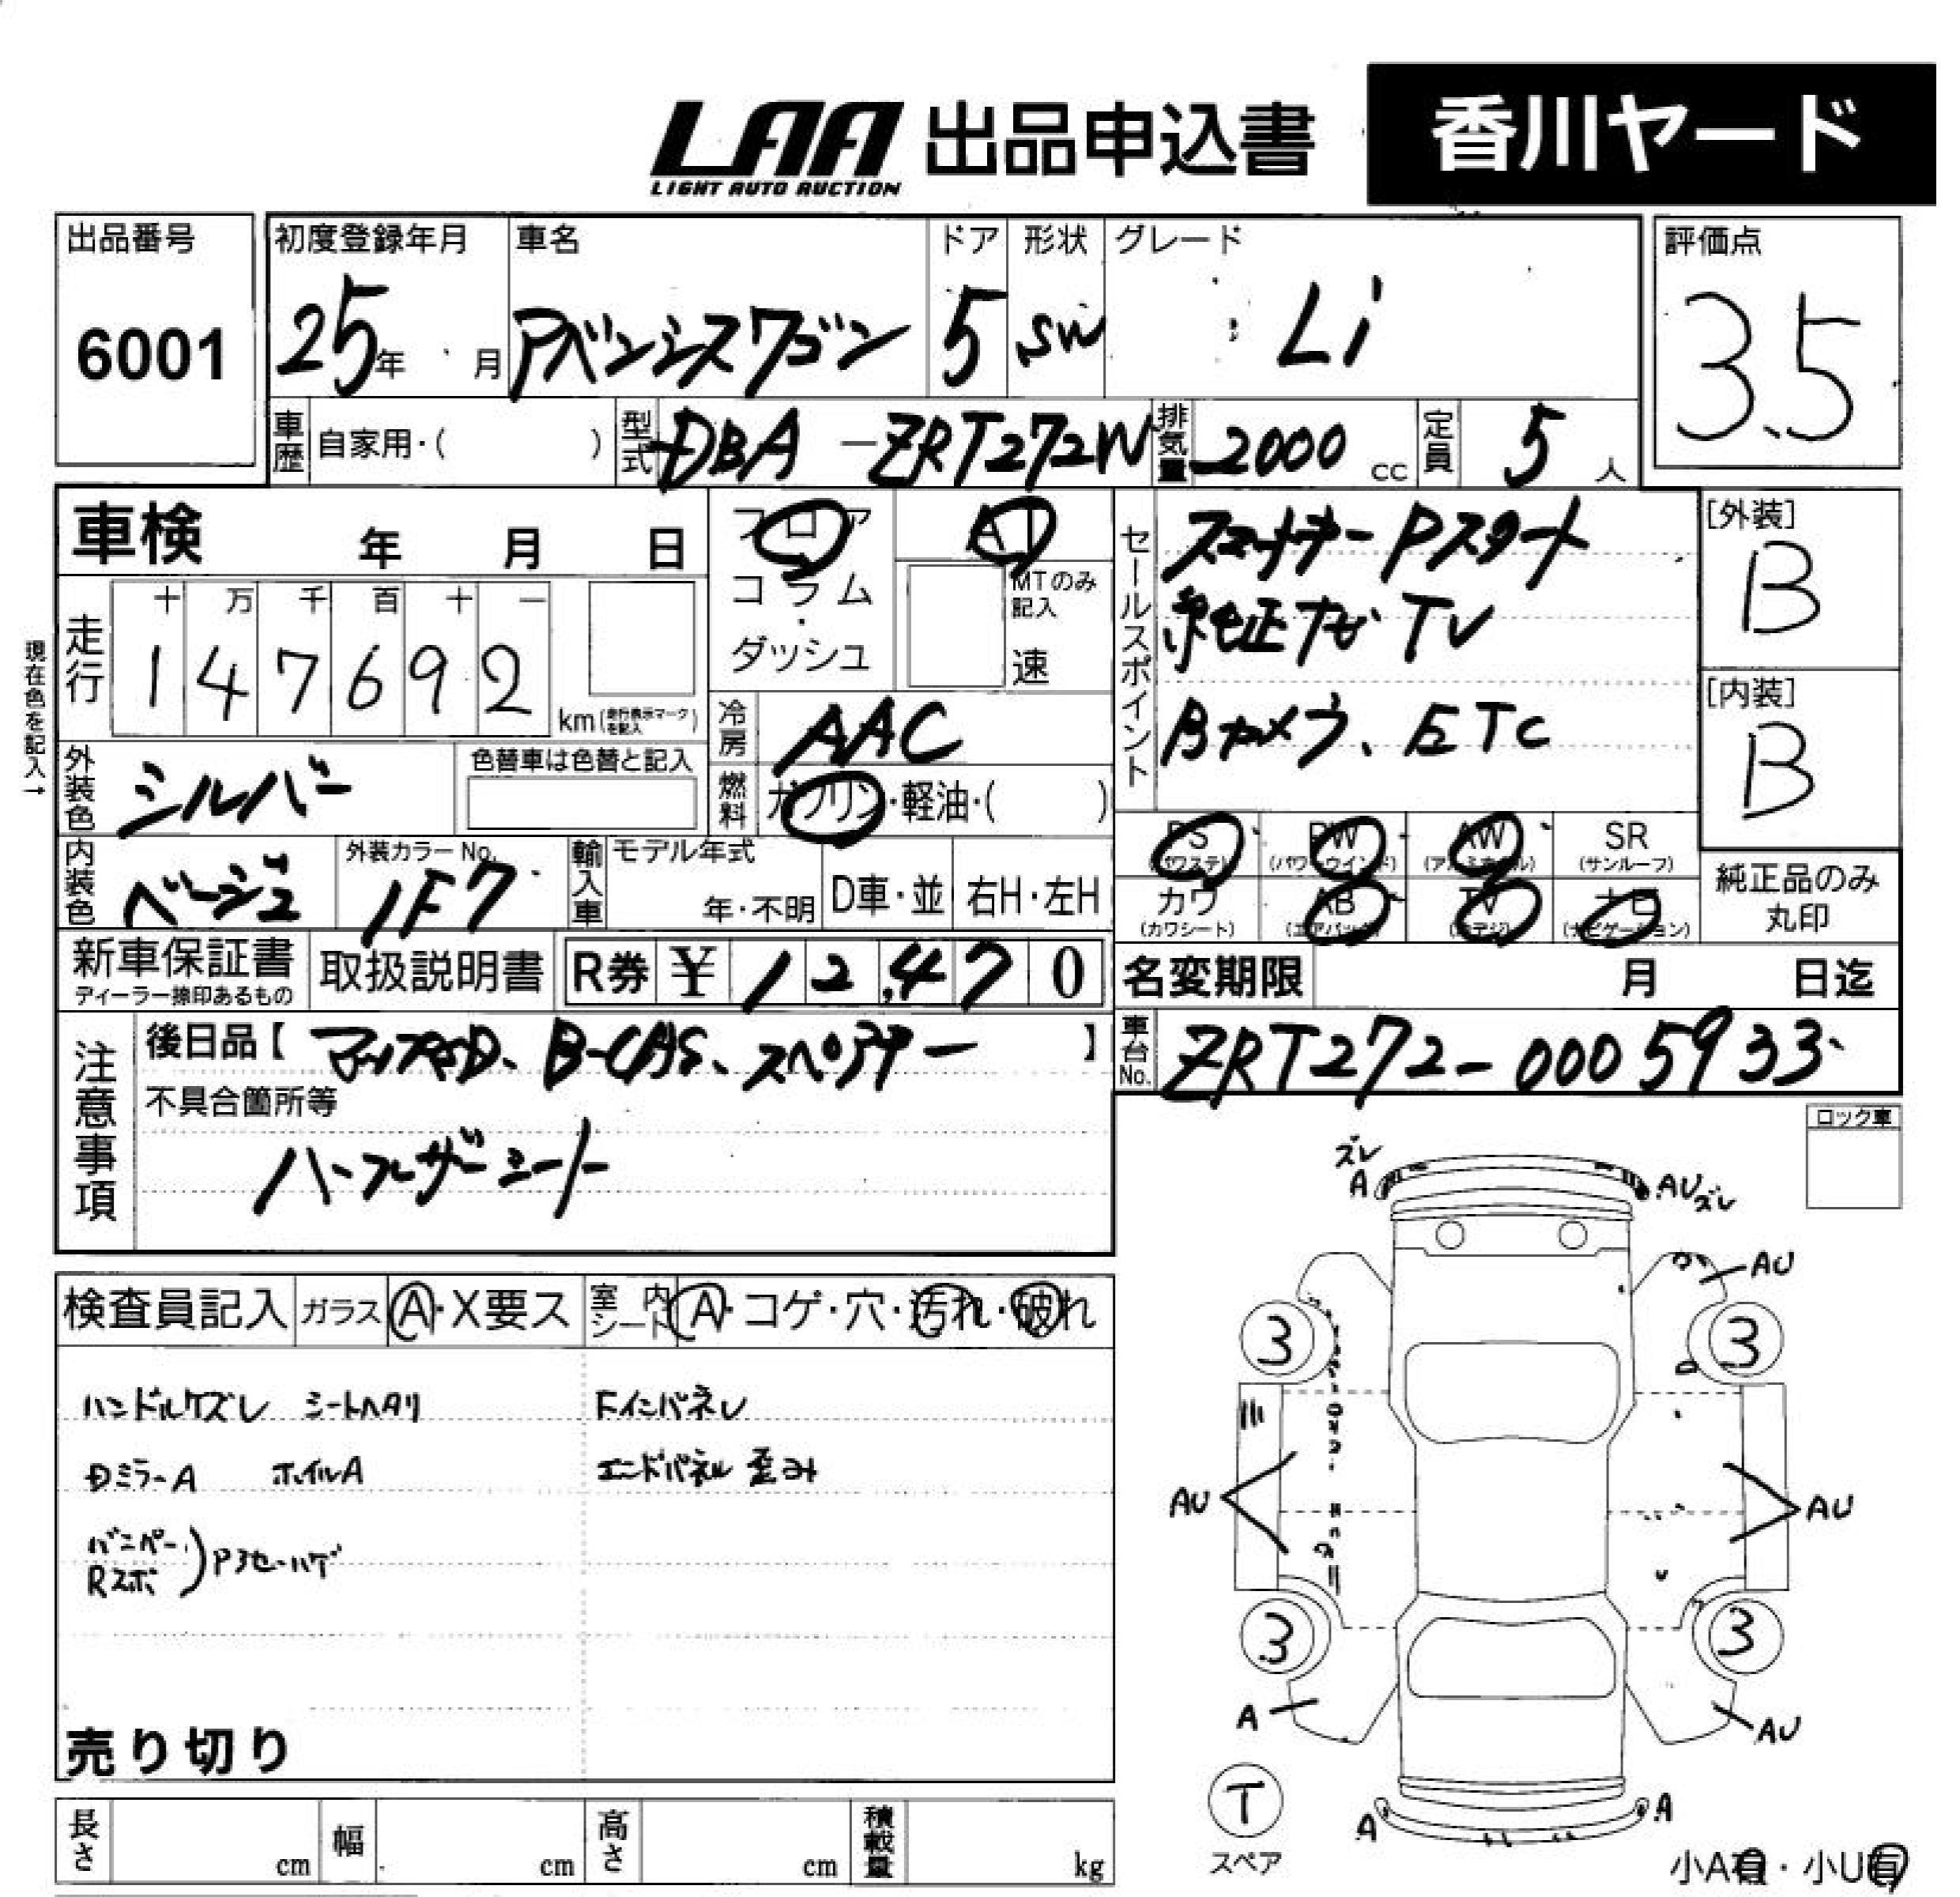 LAA 出品申込書 香川ヤード
LIGHT AUTO AUCTION
出品番号 初度登録年月 車名 ドア 形状 グレード 評価点
6001 25年 月 アベンシスワゴン 5 SW Li 3.5
車歴 自家用・( ) 型式 DBA-ZRT272W 排気量 2000 cc 定員 5 人
車検 年 月 日 フロア AT
コラム・ダッシュ MTのみ記入 速
走行 十 万 千 百 十 一
1 4 7 6 9 2 km (走行表示マークを記入)
現在色を記入→
冷房 AAC
外装色 シルバー 色替車は色替と記入 燃料 ガソリン・軽油・( )
内装色 ベージュ 外装カラーNo. 1F7 輸入車 モデル年式 年・不明 D車・並 右H・左H
新車保証書 ディーラー捺印あるもの 取扱説明書 R券 ¥ 12,470
セールスポイント
スマートキー Pスタート
純正ナビ TV
Bカメラ、ETC
[外装] B
[内装] B
PS (パワステ) PW (パワーウインド) AW (アルミホイル) SR (サンルーフ)
カワ (カワシート) AB (エアバック) TV (地デジ) ナビ (ナビゲーション)
純正品のみ丸印
名変期限 月 日迄
車台No. ZRT272-0005933
注意事項 後日品【 B-CAS、スペアキー 】
不具合箇所等
ハーフレザーシート
ロック車
検査員記入 ガラス A・X要ス 室内シート A・コゲ・穴・汚れ・破れ
ハンドルケズレ シートヘタリ FインパネU
Dミラー A ホイルA エンドパネル 歪み
バンパー
Rスポ )
売り切り
長さ cm 幅 cm 高さ cm 積載量 kg
ズレ
A AU ズレ
AU
3 3
AU AU
3 3
A AU
T
スペア
A A
小A有・小U有